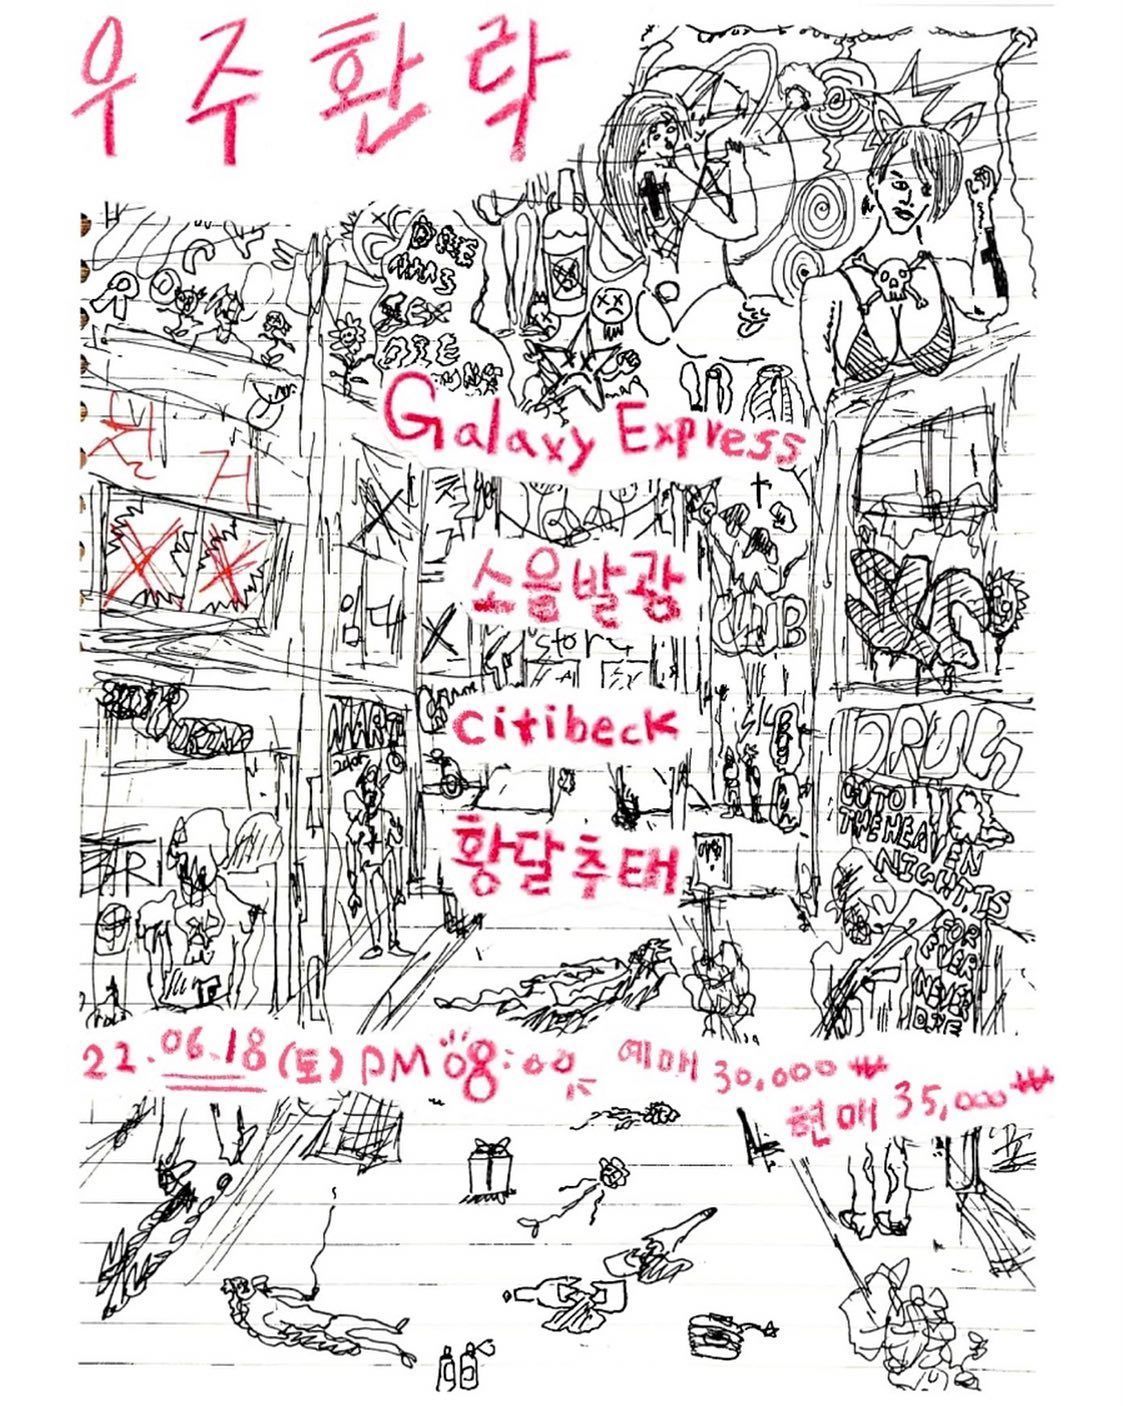 우주환락
DIE
SEX
DIE
Galaxy Express
철거
소음발광
CLUB
Store
citibeck
MART
24hr
DRUG
GO TO
THE HEAVEN
NIGHT IS
FOR
EVER
NEVER
DIE
황달추태
22.06.18 (토) PM 08:00
예매 30,000₩
현매 35,000₩